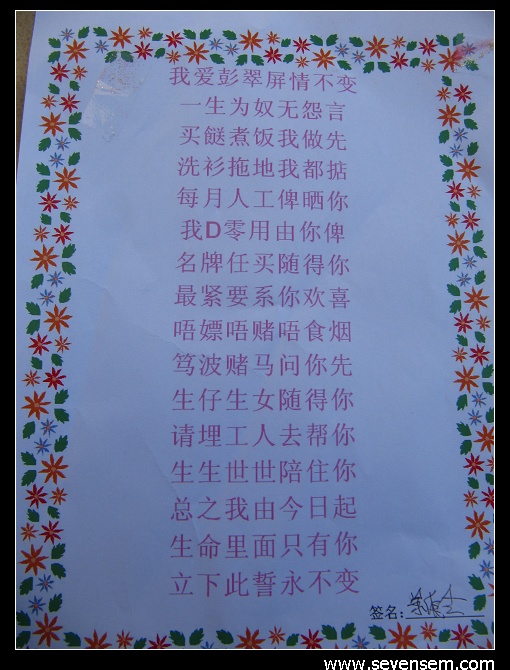 我爱彭翠屏情不变
一生为奴无怨言
买餸煮饭我做先
洗衫拖地我都掂
每月人工俾晒你
我D零用由你俾
名牌任买随得你
最紧要系你欢喜
唔嫖唔赌唔食烟
笃波赌马问你先
生仔生女随得你
请埋工人去帮你
生生世世陪住你
总之我由今日起
生命里面只有你
立下此誓永不变
签名:
www.sevensem.com